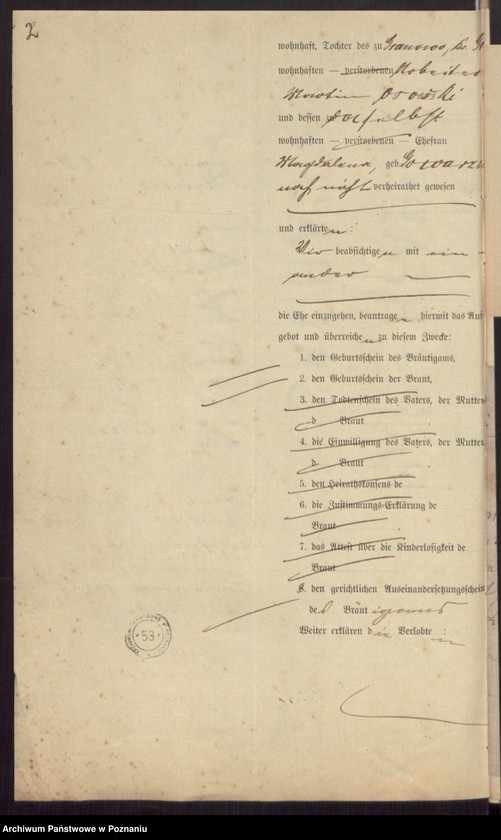 2
wohnhaft, Tochter des zu Granowo, Kr.
wohnhaften — verstorbenen Arbeiter
Martin
und dessen zu daselbst
wohnhaften — verstorbenen — Ehefrau
Magdalena, geb.
noch nicht verheirathet gewesen
und erklärten:
Wir beabsichtigen mit ein-
ander
die Ehe einzugehen, beantragen hiermit das Auf
gebot und überreichen zu diesem Zwecke:
1. den Geburtsschein des Bräutigams,
2. den Geburtsschein der Braut,
3. den Todtenschein des Vaters, der Mutter
d Braut
4. die Einwilligung des Vaters, der Mutter
d Braut
5. den Heirathskonsens de
6. die Zustimmungs-Erklärung de
Braut
7. das Attest über die Kinderlosigkeit de
Braut
8. den gerichtlichen Auseinandersetzungsschein
des Bräutigams
Weiter erklären die Verlobten:
53
Archiwum Państwowe w Poznaniu